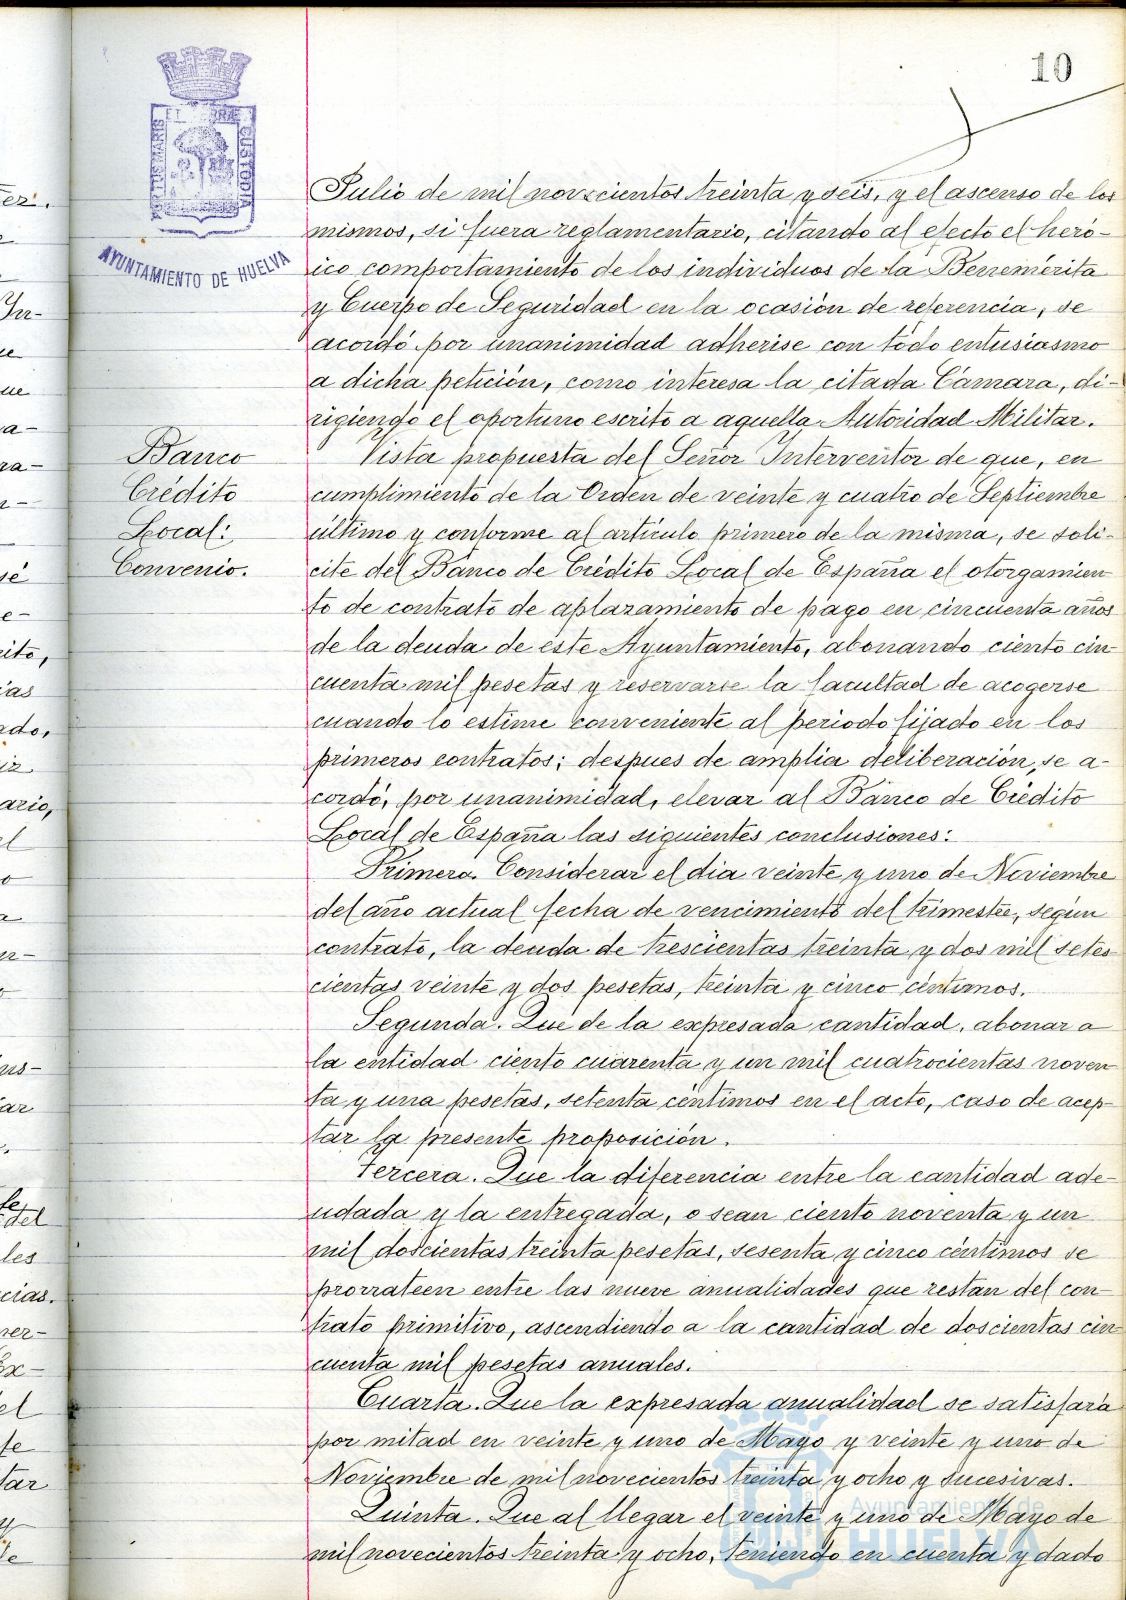 10
PORTUS MARIS ET TERRAE CUSTODIA
AYUNTAMIENTO DE HUELVA
Julio de mil novecientos treinta y seis, y el ascenso de los
mismos, si fuera reglamentario, citando al efecto el heró-
ico comportamiento de los individuos de la Benemérita
y Cuerpo de Seguridad en la ocasión de referencia, se
acordó por unanimidad adherise con todo entusiasmo
a dicha petición, como interesa la citada Cámara, di-
rigiendo el oportuno escrito a aquella Autoridad Militar.
Banco
Crédito
Local:
Convenio.
Vista propuesta del Señor Interventor de que, en
cumplimiento de la Orden de veinte y cuatro de Septiembre
último y conforme al artículo primero de la misma, se soli-
cite del Banco de Crédito Local de España el otorgamien
to de contrato de aplazamiento de pago en cincuenta años
de la deuda de este Ayuntamiento, abonando ciento cin
cuenta mil pesetas y reservarse la facultad de acogerse
cuando lo estime conveniente al periodo fijado en los
primeros contratos; despues de amplia deliberación, se a-
cordó, por unanimidad, elevar al Banco de Crédito
Local de España las siguientes conclusiones:
Primera. Considerar el dia veinte y uno de Noviembre
del año actual fecha de vencimiento del trimestre, según
contrato, la deuda de trescientas treinta y dos mil setes
cientas veinte y dos pesetas, treinta y cinco céntimos.
Segunda. Que de la expresada cantidad, abonar a
la entidad ciento cuarenta y un mil cuatrocientas noven
ta y una pesetas, setenta céntimos en el acto, caso de acep-
tar la presente proposición.
Tercera. Que la diferencia entre la cantidad ade-
udada y la entregada, o sean ciento noventa y un
mil doscientas treinta pesetas, sesenta y cinco céntimos se
prorrateen entre las nueve anualidades que restan del con-
trato primitivo, ascendiendo a la cantidad de doscientas cin
cuenta mil pesetas anuales.
Cuarta. Que la expresada anualidad se satisfará
por mitad en veinte y uno de Mayo y veinte y uno de
Noviembre de mil novecientos treinta y ocho y sucesivas.
Quinta. Que al llegar el veinte y uno de Mayo de
mil novecientos treinta y ocho, teniendo en cuenta y dado
Ayuntamiento de
HUELVA